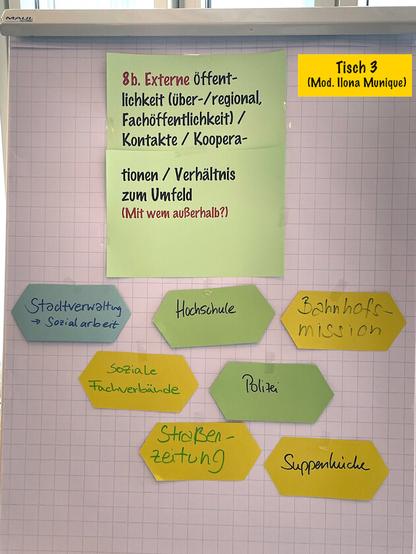 MAUL
8b. Externe Öffent-
lichkeit (über-/regional,
Fachöffentlichkeit) /
Kontakte / Koopera-
tionen / Verhältnis
zum Umfeld
(Mit wem außerhalb?)
Tisch 3
(Mod. Ilona Munique)
Stadtverwaltung
→ Sozialarbeit
Hochschule
Bahnhofs-
mission
Soziale
Fachverbände
Polizei
Straßen-
zeitung
Suppenküche